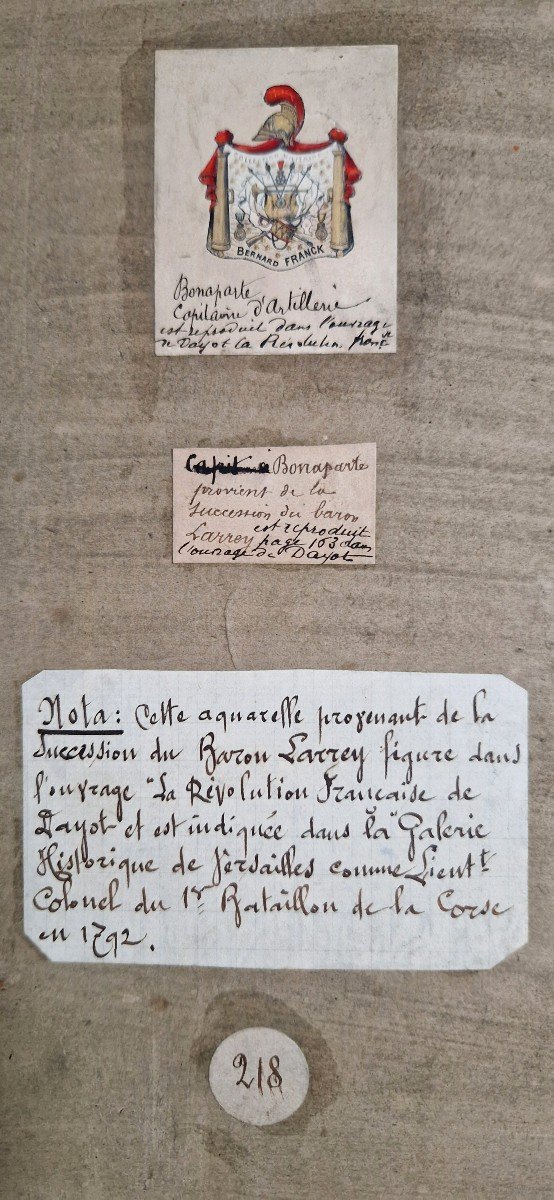 COLLECTION MILITAIRE
BERNARD FRANCK
Bonaparte
Capitaine d'Artillerie
est reproduit dans l'ouvrage
de Dayot la Révolution franc<sup>se</sup>
Bonaparte
provient de la
succession du baron
Larrey est reproduit
page 163 dans
l'ouvrage de Dayot
Nota: Cette aquarelle provenant de la
Succession du Baron Larrey figure dans
l'ouvrage "La Révolution Française de
Dayot et est indiquée dans la "Galerie
Historique de Versailles comme Lient<sup>t</sup>
Colonel du 1<sup>er</sup> Bataillon de la Corse
en 1792.
218